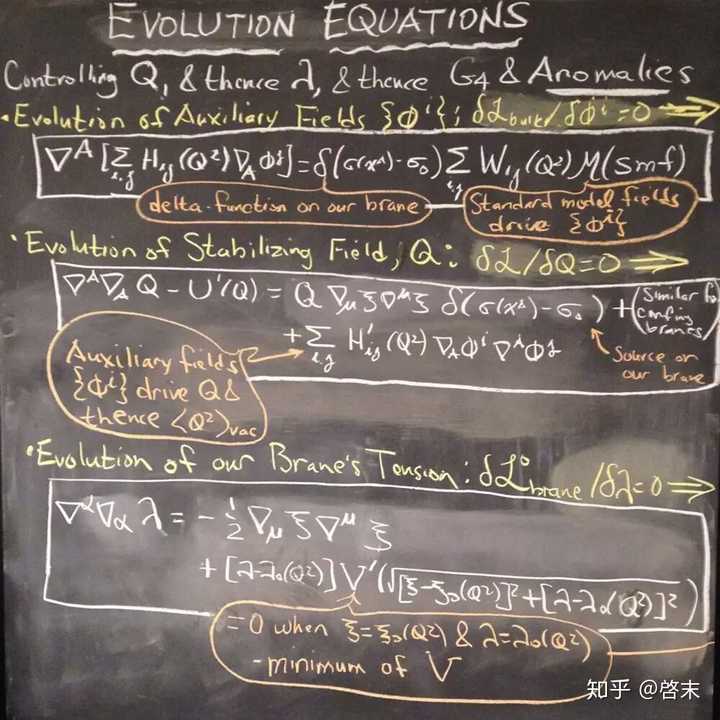 EVOLUTION EQUATIONS
Controlling Q, & thence λ, & thence G4 & Anomalies
• Evolution of Auxiliary Fields {Φ^i}; δL_bulk/δΦ^i = 0 ⇒
∇^A [Σ_{i,j} H_ij(Q²) ∇_A Φ^j] = δ(σ(x^μ) - σ_0) Σ_{i,j} W_ij(Q²) M(smf)
delta-function on our brane
Standard model fields
drive {Φ^i}
• Evolution of Stabilizing Field, Q: δL/δQ = 0 ⇒
∇^A ∇_A Q - U'(Q) = Q ∇_μ ξ ∇^μ ξ δ(σ(x^μ) - σ_0) + (Similar for
branes)
+ Σ_{i,j} H'_ij(Q²) ∇_A Φ^i ∇^A Φ^j
Source on
our brane
Auxiliary fields
{Φ^i} drive Q &
thence <Q²>_vac
• Evolution of our Brane's Tension: δL°_brane/δλ = 0 ⇒
∇^α ∇_α λ = - 1/2 ∇_μ ξ ∇^μ ξ
+ [λ-λ_0(Q²)] V'(√([ξ-ξ_0(Q²)]² + [λ-λ_0(Q²)]²))
= 0 when ξ = ξ_0(Q²) & λ = λ_0(Q²)
- minimum of V
知乎 @啓末